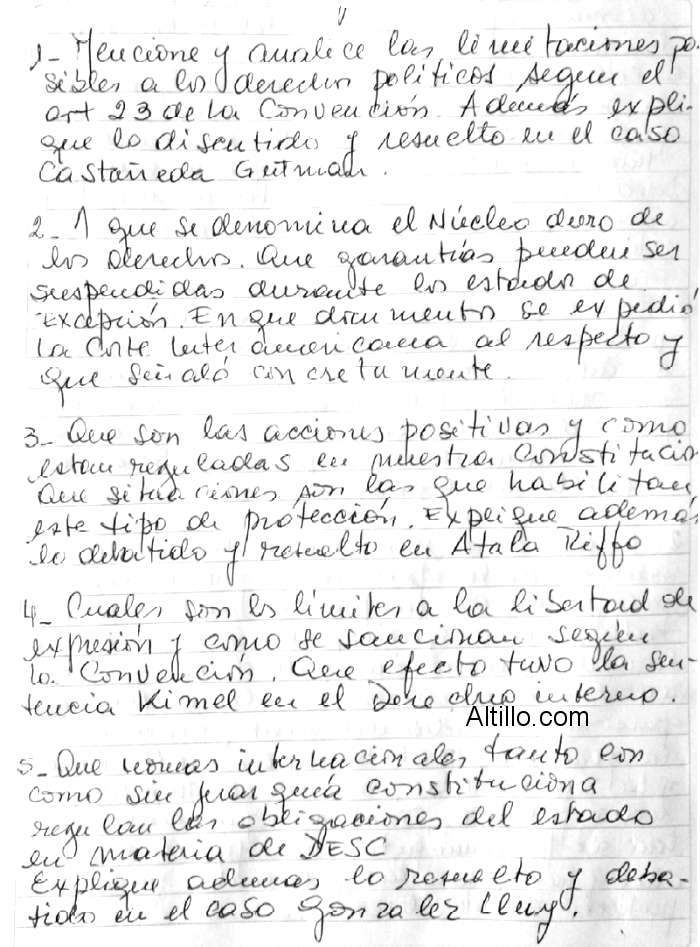 1- Mencione y analice las limitaciones po-
sibles a los derechos políticos segun el
art 23 de la Convención. Además expli-
que lo discutido y resuelto en el caso
Castañeda Gutman.
2- A que se denomina el Núcleo duro de
los derechos. Que garantías pueden ser
suspendidas durante los estados de
Excepción. En que documentos se expedió
la Corte Interamericana al respecto y
que señaló concretamente.
3- Que son las acciones positivas y como
estan reguladas en nuestra Constitucion
Que situaciones son las que habilitan
este tipo de protección. Explique ademas
lo debatido y resuelto en Atala Riffo
4- Cuales son los límites a la libertad de
expresión y como se sancionan según
la Convención. Que efecto tuvo la sen-
tencia Kimel en el Derecho interno.
Altillo.com
5- Que normas internacionales tanto con
como sin jerarquía constituciona
regulan las obligaciones del estado
en materia de DESC
Explique ademas lo resuelto y deba-
tido en el caso Gonzalez Lluy.